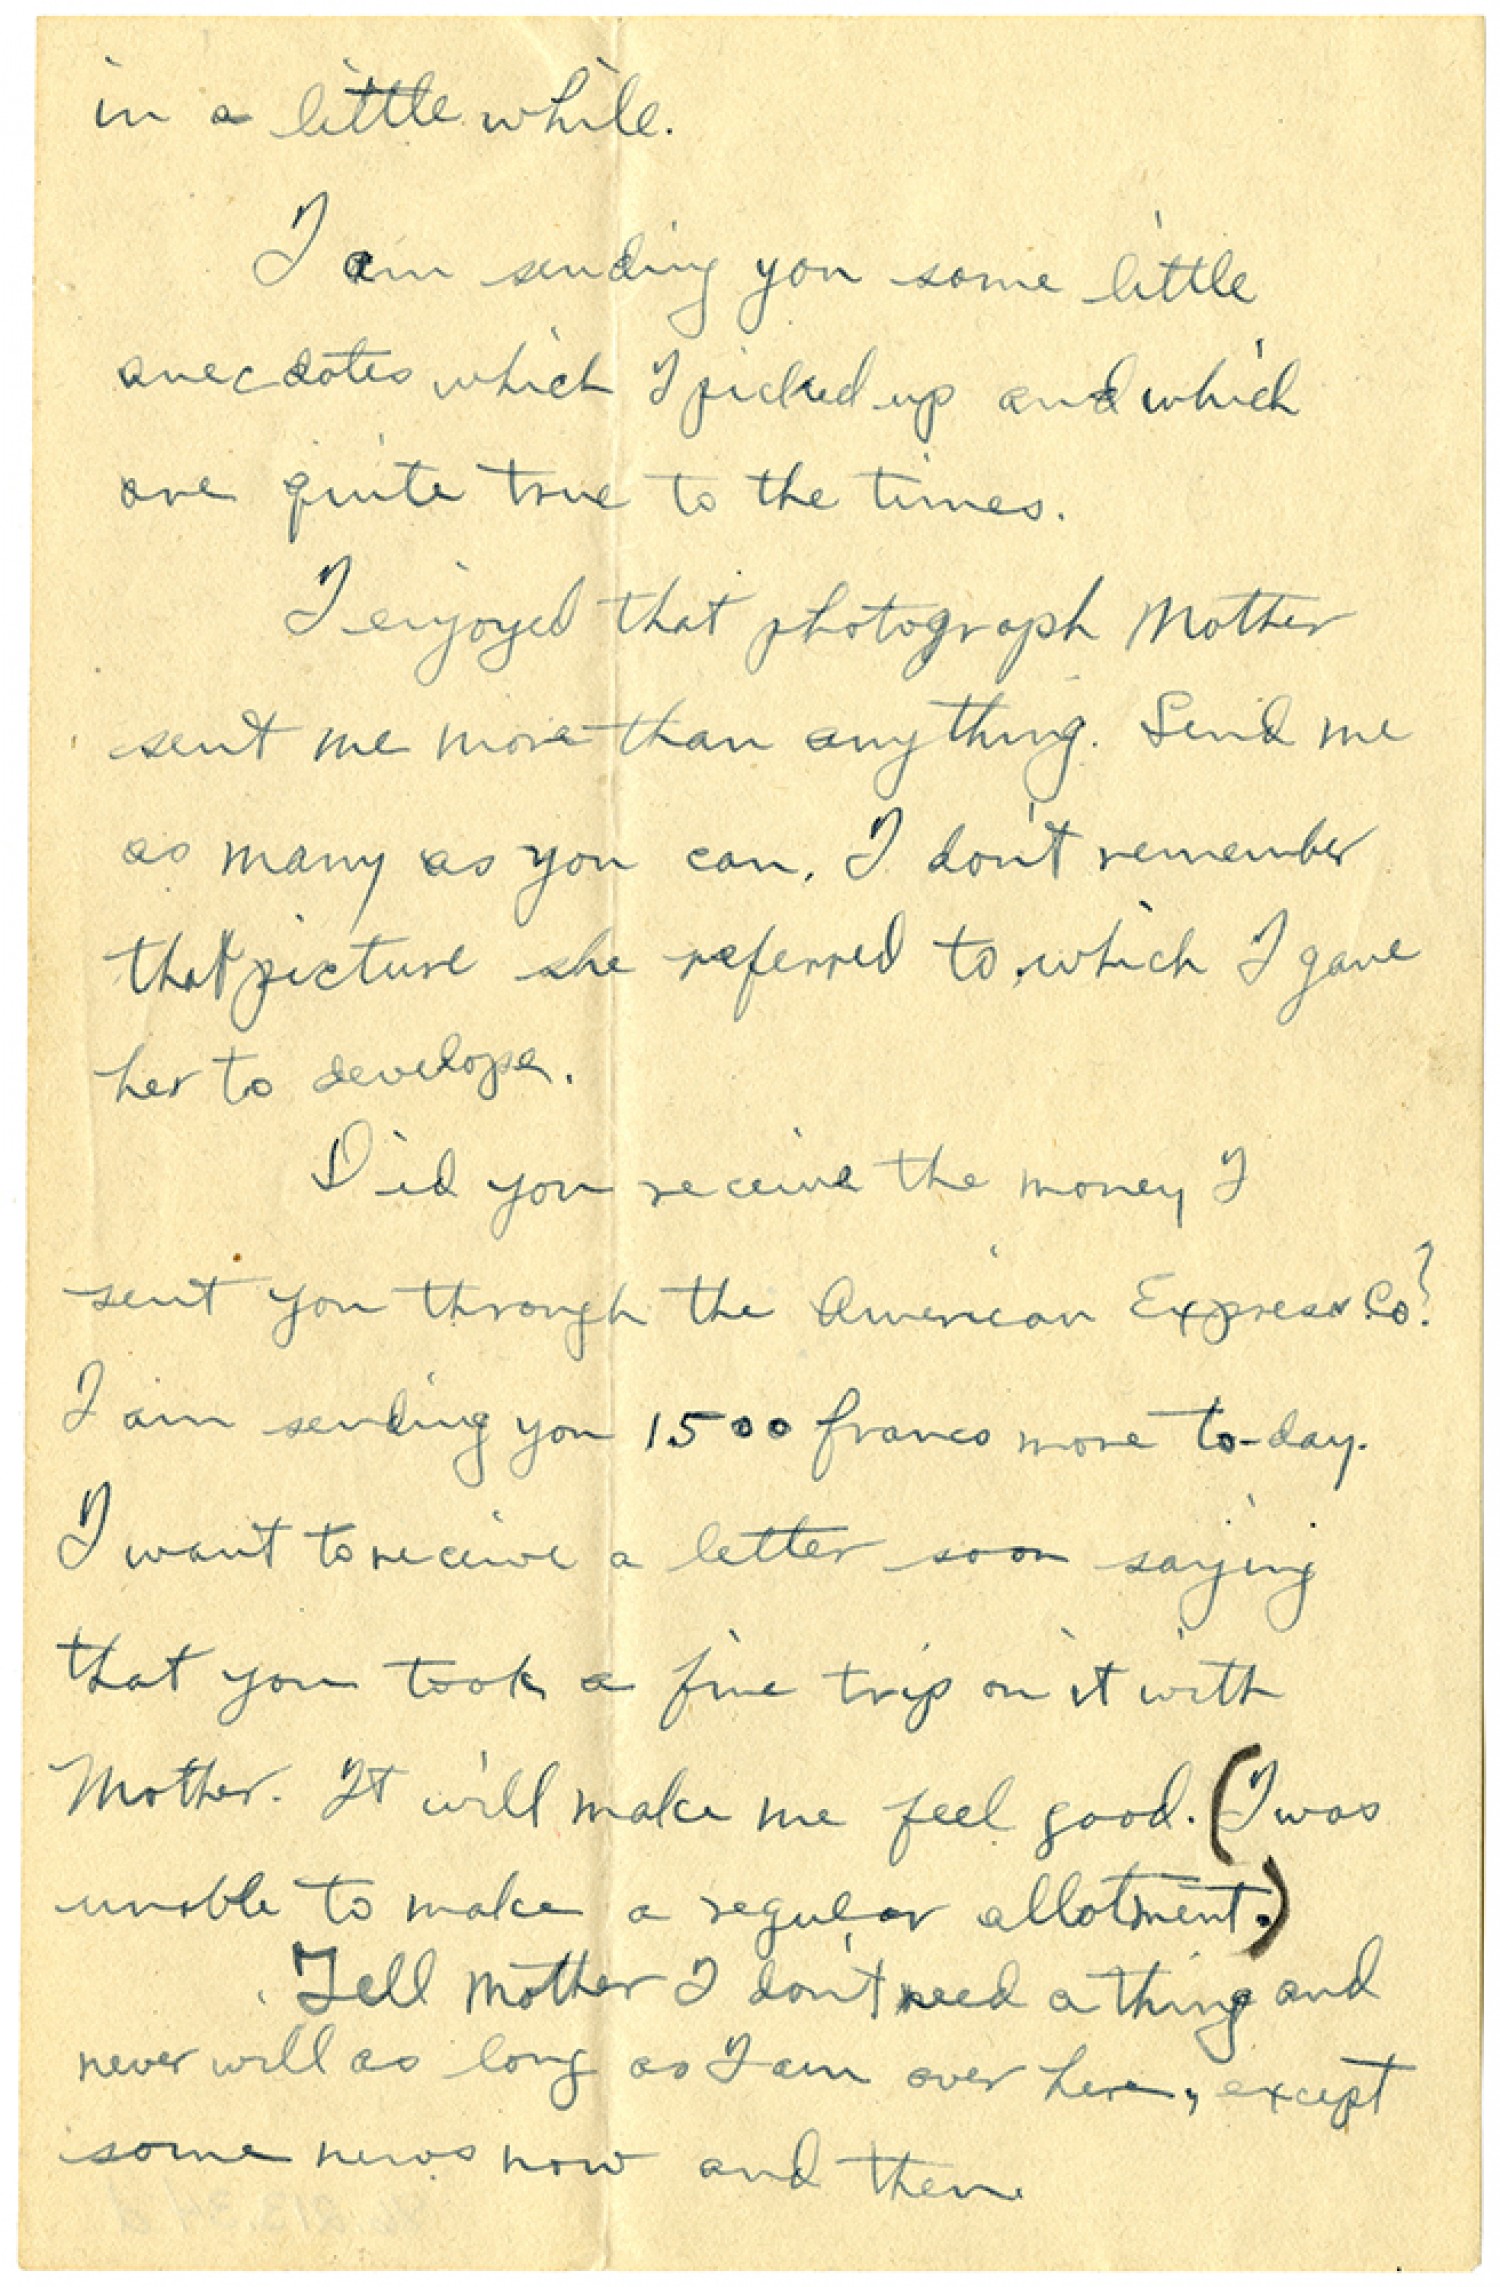 in a little while.
I am sending you some little
anecdotes which I picked up and which
are quite true to the times.
I enjoyed that photograph Mother
sent me more than anything. Send me
as many as you can. I don't remember
that picture she referred to which I gave
her to develope.
Did you receive the money I
sent you through the American Express Co?
I am sending you 1500 francs more to-day.
I want to receive a letter soon saying
that you took a fine trip on it with
Mother. It will make me feel good. (I was
unable to make a regular allotment.)
Tell Mother I don't need a thing and
never will as long as I am over here, except
some news now and then.